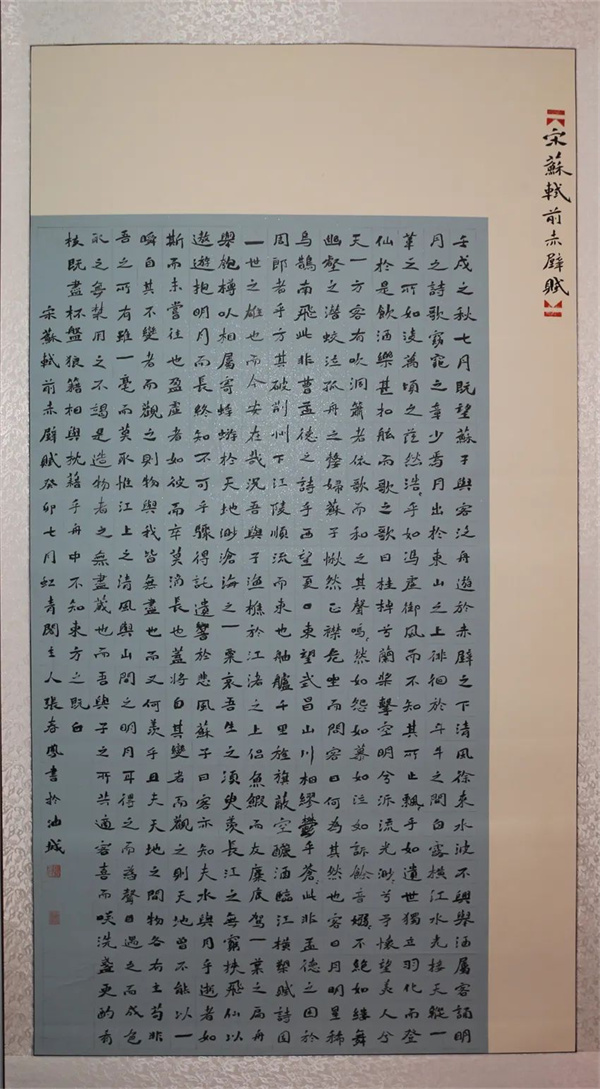 【宋蘇軾前赤壁賦】
壬戌之秋七月既望蘇子與客泛舟遊於赤壁之下清風徐來水波不興舉酒屬客誦明
月之詩歌窈窕之章少焉月出於東山之上徘徊於斗牛之間白露橫江水光接天縱一
葦之所如淩萬頃之茫然浩〻乎如馮虛御風而不知其所止飄〻乎如遺世獨立羽化而登
仙於是飲酒樂甚扣舷而歌之歌曰桂棹兮蘭槳擊空明兮泝流光渺〻兮予懷望美人兮
天一方客有吹洞簫者依歌而和之其聲嗚〻然如怨如慕如泣如訴餘音嫋〻不絕如縷舞
幽壑之潛蛟泣孤舟之嫠婦蘇子愀然正襟危坐而問客曰何為其然也客曰月明星稀
烏鵲南飛此非曹孟德之詩乎西望夏口東望武昌山川相繆鬱乎蒼〻此非孟德之困於
周郎者乎方其破荊州下江陵順流而東也舳艫千里旌旗蔽空釃酒臨江橫槊賦詩固
一世之雄也而今安在哉況吾與子漁樵於江渚之上侶魚鰕而友麋鹿駕一葉之扁舟
舉匏樽以相屬寄蜉蝣於天地渺滄海之一粟哀吾生之須臾羨長江之無窮挾飛仙以
遨遊抱明月而長終知不可乎驟得託遺響於悲風蘇子曰客亦知夫水與月乎逝者如
斯而未嘗往也盈虛者如彼而卒莫消長也蓋將自其變者而觀之則天地曾不能以一
瞬自其不變者而觀之則物與我皆無盡也而又何羨乎且夫天地之間物各有主苟非
吾之所有雖一毫而莫取惟江上之清風與山間之明月耳得之而為聲目遇之而成色
取之無禁用之不竭是造物者之無盡藏也而吾與子之所共適客喜而笑洗盞更酌肴
核既盡杯盤狼籍相與枕藉乎舟中不知東方之既白
宋蘇軾前赤壁賦癸卯七月虹青閣主人張春鳳書於油城